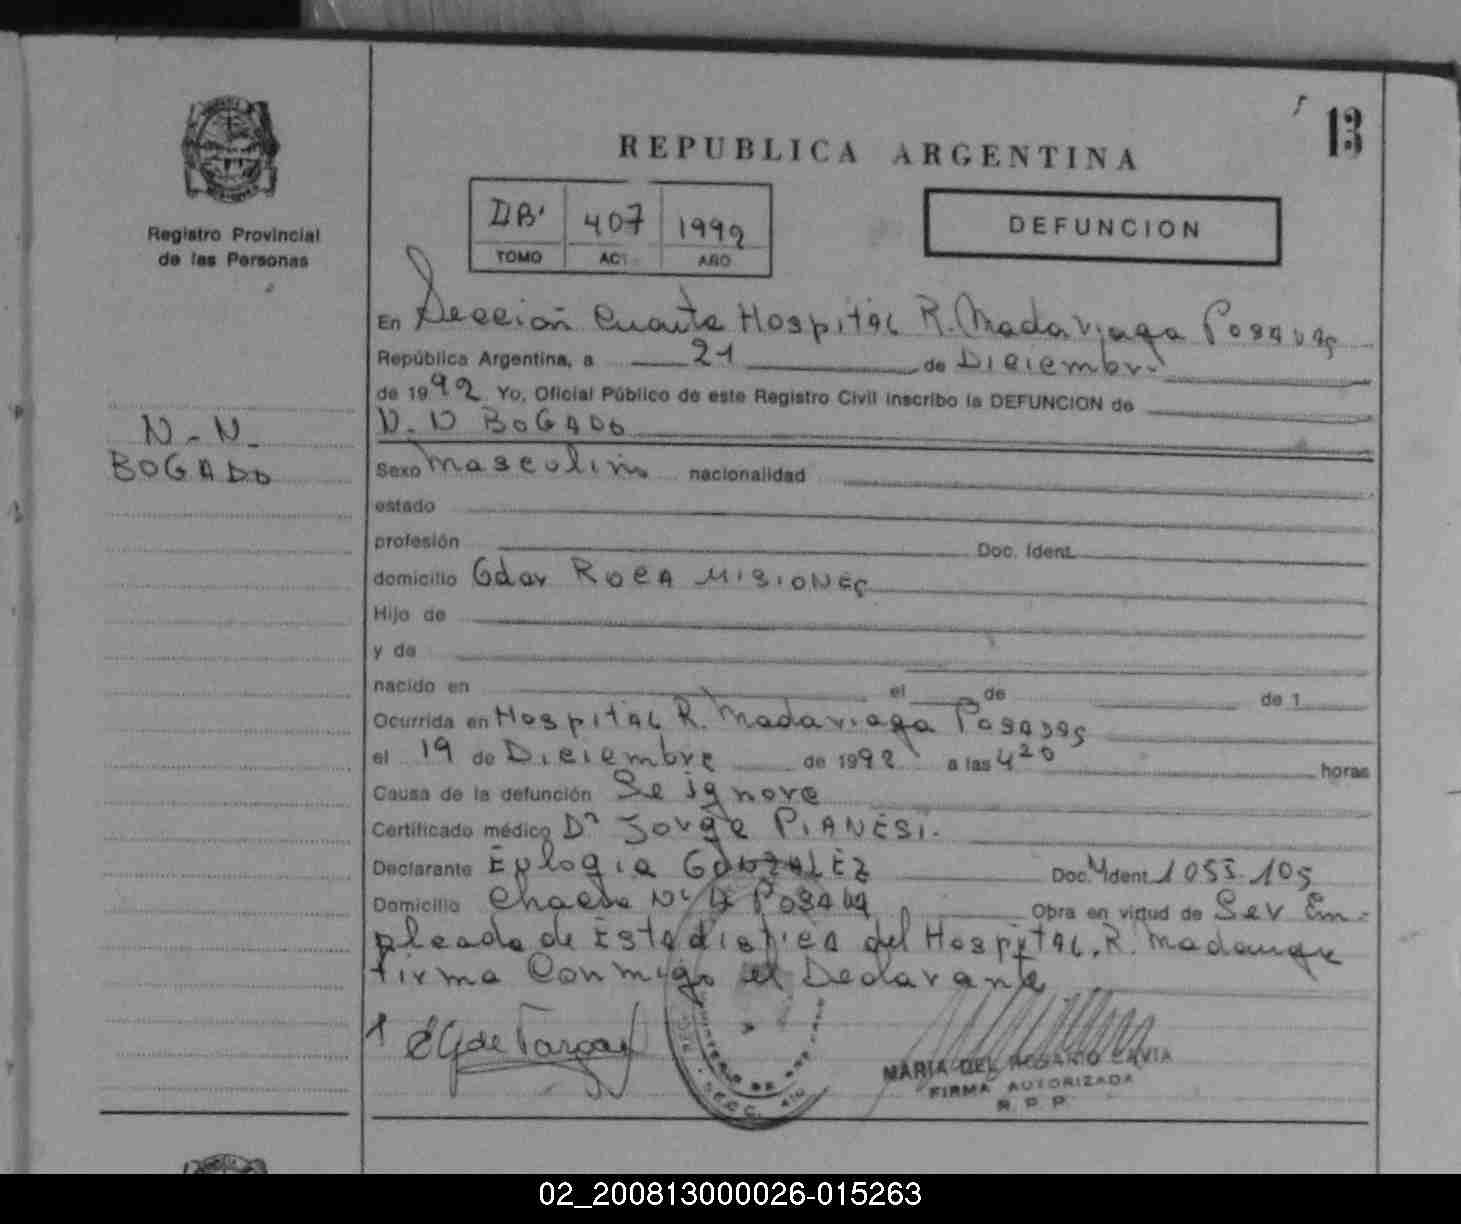 13
REPUBLICA ARGENTINA
DB' 407 1992
TOMO ACT. AÑO
DEFUNCION
Registro Provincial
de las Personas
N-N-
BOGADO
En Sección Cuarta Hospital R. Madariaga Posadas
República Argentina, a 21 de Diciembre
de 1992. Yo, Oficial Público de este Registro Civil inscribo la DEFUNCION de
N.N BOGADO
Sexo masculino nacionalidad
estado
profesión Doc. Ident.
domicilio Gdor ROCA MISIONES
Hijo de
y de
nacido en el de de 1
Ocurrida en Hospital R. Madariaga Posadas
el 19 de Diciembre de 1992 a las 4 20 horas
Causa de la defunción Se ignora
Certificado médico Dr Jorge PIANESI.
Declarante Eulogia GONZALEZ Doc. Ident 1055.105
Domicilio Chacra Nº Posadas Obra en virtud de Ser Em-
pleada de Estadistica del Hospital. R. Madariaga
firma Conmigo el Declarante
MARIA DEL ROSARIO LAVIA
FIRMA AUTORIZADA
R. P. P.
02_200813000026-015263